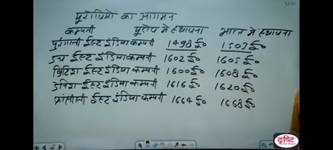 यूरोपियो का आगमन
कम्पनी यूरोप मे स्थापना भारत मे स्थापना
पुर्तगाली ईस्ट इंडिया कम्पनी 1498 ई० 1503 ई०
डच ईस्ट इंडिया कम्पनी 1602 ई० 1605 ई०
ब्रिटिश ईस्ट इंडिया कम्पनी 1600 ई० 1608 ई०
डेनिश ईस्ट इंडिया कम्पनी 1616 ई० 1620 ई०
फ्रांसीसी ईस्ट इंडिया कम्पनी 1664 ई० 1668 ई०
दृष्टि